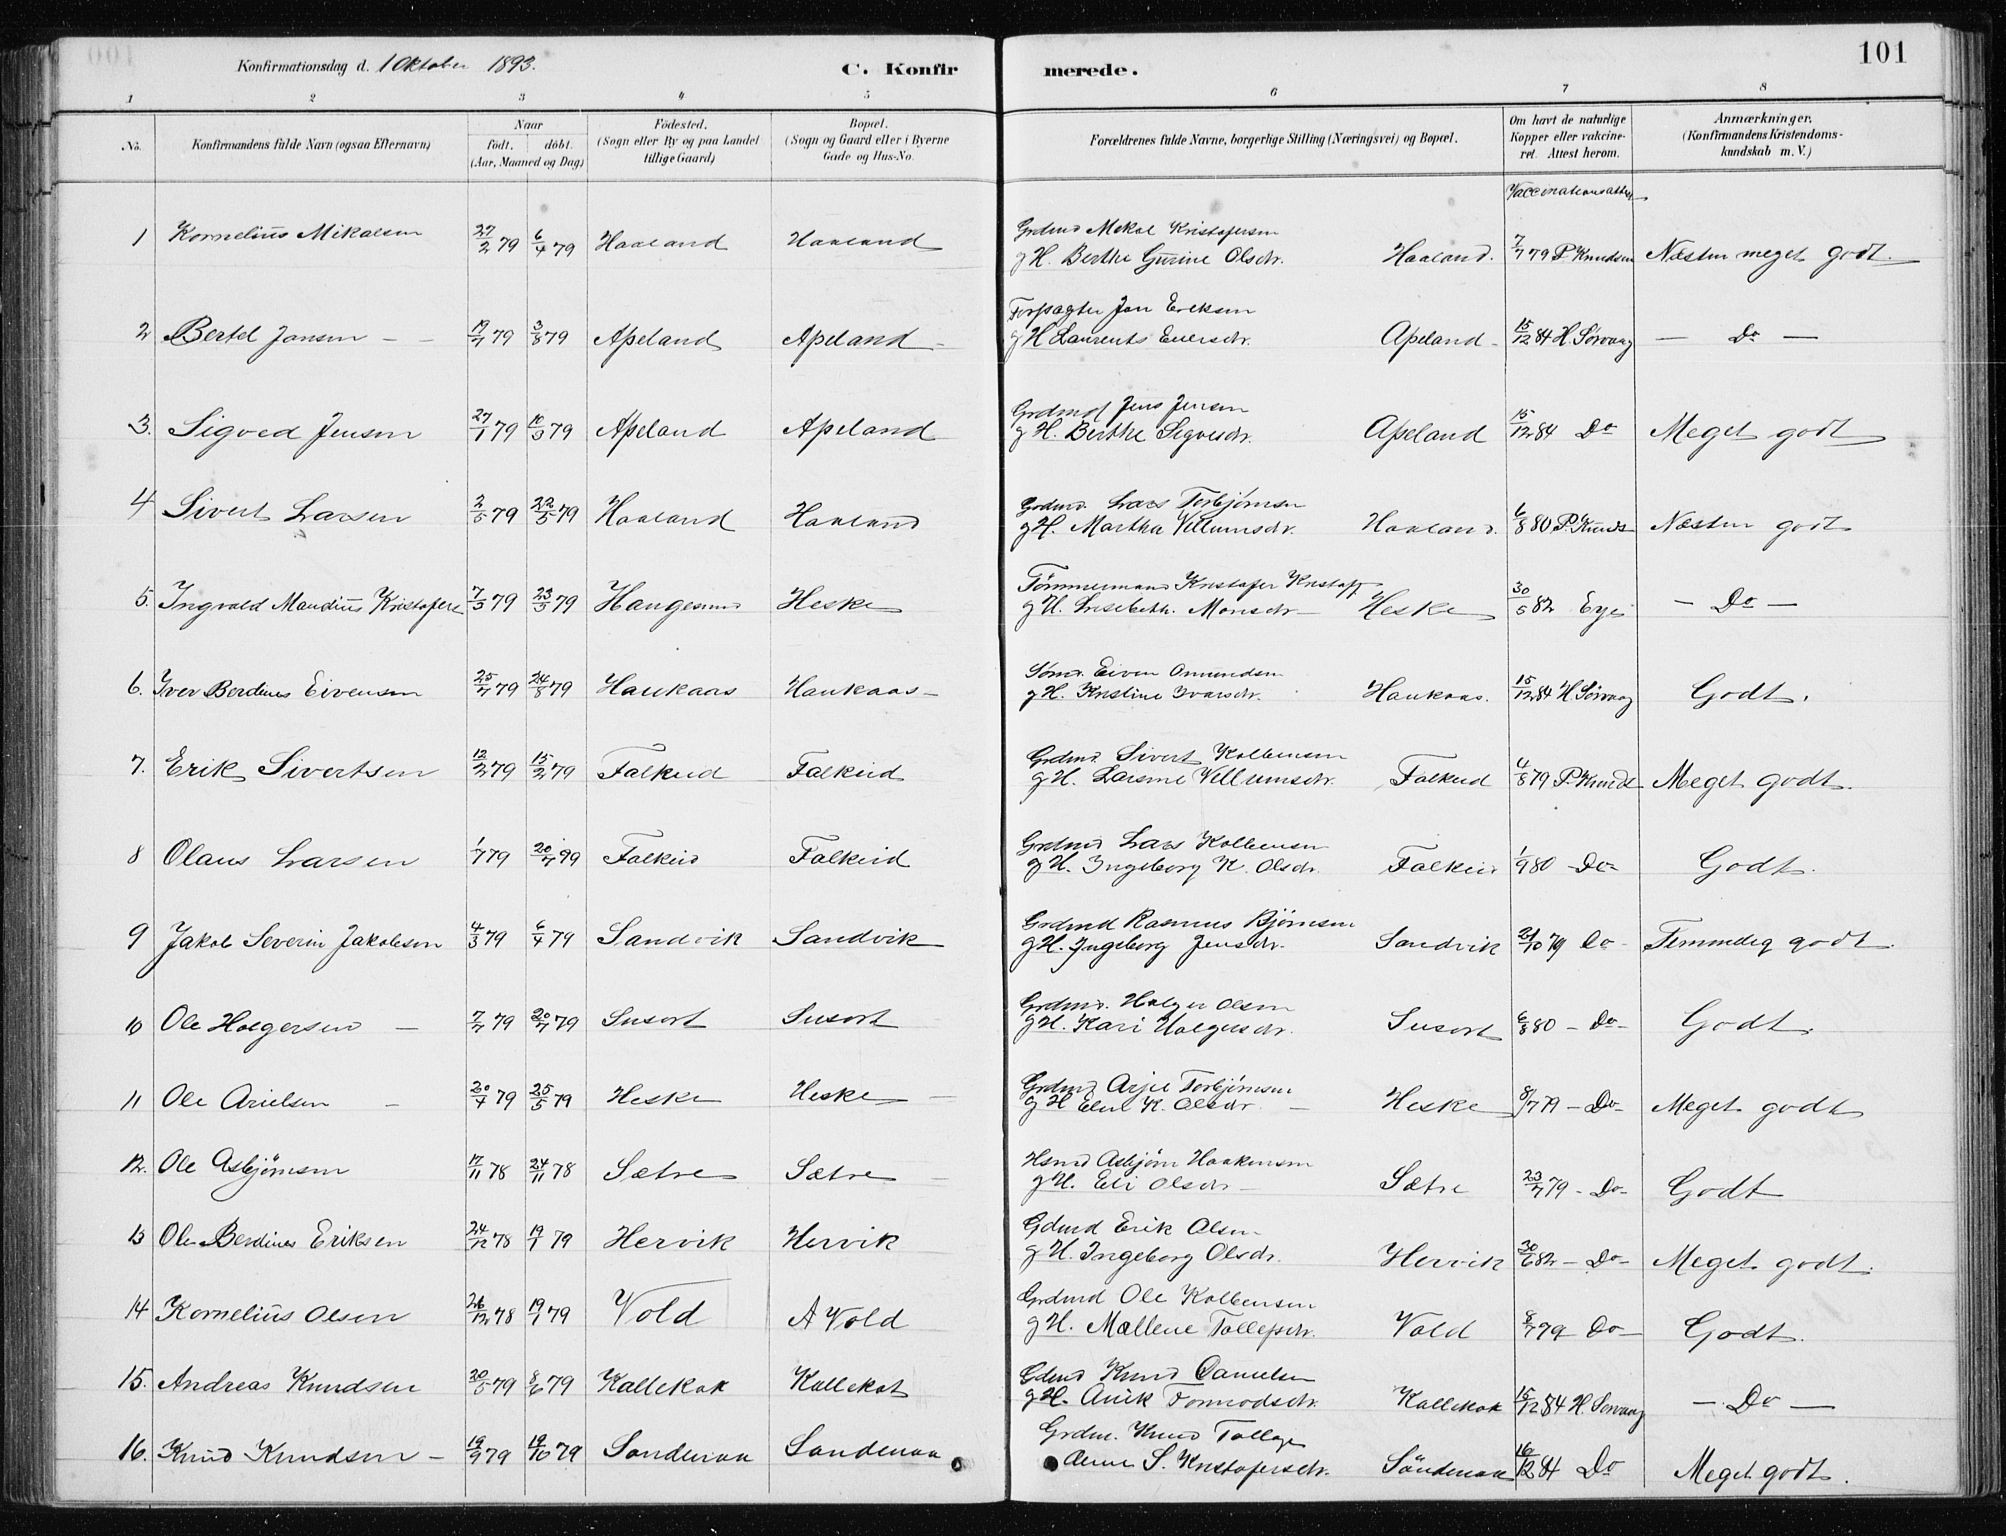 101
Konfirmationsdag d. 1 Oktober 1893.
C. Konfirmerede.
1 2 3 4 5 6 7 8
No.
Konfirmandens fulde Navn (ogsaa Efternavn)
Naar
født. døbt.
(Aar, Maaned og Dag)
Fødested.
(Sogn eller By og paa Landet
tillige Gaard)
Bopæl.
(Sogn og Gaard eller i Byerne
Gade og Hus-No.
Forældrenes fulde Navne, borgerlige Stilling (Næringsvei) og Bopæl.
Om havt de naturlige
Kopper eller vakcine-
ret. Attest herom.
Anmærkninger.
(Konfirmandens Kristendoms-
kundskab m. V.)
Vaccinationsattest
Grdmd Mekal Kristofersen
1 Kornelius Mikalsen 27/2 79 6/4 79 Haaland Haaland g H. Berthe Gurine Olsdr. Haaland. 7/7 79 P Knudsen Næsten meget godt.
Forpagter Jon Eriksen
2 Bertel Jonsen 19/7 79 3/8 79 Apeland Apeland g H Laurents Eilersdr. Apeland 15/12 84 H. Sørvaag — Do —
Grdmd Jens Jensen
3. Sigved Jensen 27/1 79 10/3 79 Apeland Apeland g H. Berthe Segvesdr. Apeland 15/12 84 Do Meget godt
Grdmd. Lars Torbjørnsen
4 Sivert Larsen 2/5 79 22/5 79 Haaland Haaland g H. Martha Villumsdr. Haaland. 6/8 80 P. Knuds Næsten godt
Tømmermand Kristofer Kristoff
5. Ingvald Maudius Kristofers 7/3 79 23/3 79 Haugesund Heske g H. Lisebeth. Monsdr Heske 30/5 82 Eye — Do —
Sømd. Eiven Omundsen
6. Iver Berdines Eivensen 25/7 79 24/8 79 Haukaas Haukaas g H. Kristine Ivarsdr. Haukaas. 15/12 84 H. Sørvaag Godt.
Grdmd. Sivert Kolbensen
7. Erik Sivertsen 12/2 79 15/2 79 Falkeid Falkeid g H. Larsine Villumsdr. Falkeid 4/8 79 P. Knuds Meget godt.
Grdmd Lars Kolbensen
8 Olaus Larsen 1/7 79 20/7 79 Falkeid Falkeid g H. Ingeborg K. Olsdr. Falkeid 1/9 80 Do Godt.
Grdmd Rasmus Bjørnsen
9 Jakob Severin Jakobsen 4/3 79 6/4 79 Sandvik Sandvik g H. Ingeborg Jensdr. Sandvik 21/10 79 Do Temmelig godt.
Grdmd. Holger Olsen
10 Ole Holgersen 7/7 79 20/7 79 Susort Susort g H. Kari Holgersdr. Susort 6/8 80 — Do Godt.
Grdmd Arjel Torbjørnsen
11 Ole Arielsen 20/4 79 25/5 79 Heske Heske g H Elen K. Olsdr. Heske 8/7 79 — Do Meget godt
Hsmd Asbjørn Haakensen
12. Ole Asbjørnsen 17/11 78 24/11 78 Sætre Sætre g H. Eli Olsdr Sætre 23/7 79 — Do Godt
Gdmd Erik Olsen
13 Ole Berdines Eriksen 24/12 78 19/1 79 Hervik Hervik g H. Ingeborg Olsdr. Hervik 30/6 82 — Do Meget godt.
Grdmd Ole Kolbensen
14 Kornelius Olsen 26/12 78 19/1 79 Vold A Vold g H. Mallene Tollefsdr. Vold 8/7 79 Do Godt.
Gdmd Knud Danielsen
15. Andreas Knudsen 20/5 79 8/6 79 Kallekok Kallekot g H. Anik Tormodsdr. Kallekok 15/12 84 H. Sørvaag — Do —
Grdm. Knud Tollags
16. Knud Knudsen 19/9 79 19/10 79 Sandenaa Sandenaa Anne S. Kristofersdr. Sandenaa 16/12 84 Do Meget godt.